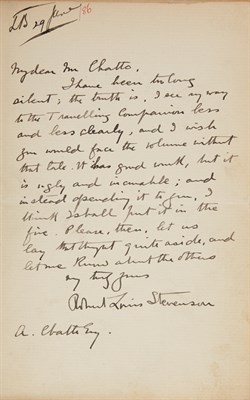 29 June
86
My dear Mr Chatto,
I have been too long
silent; the truth is, I see my way
to the Travelling Companion less
and less clearly, and I wish
you would face the volume without
that tale. It has good work, but it
is ugly and incurable; and
instead of sending it to you, I
think I shall put it in the
fire. Please, then, let us
lay that thought quite aside, and
let me know about the others
yours
Robert Louis Stevenson
A. Chatto Esq.